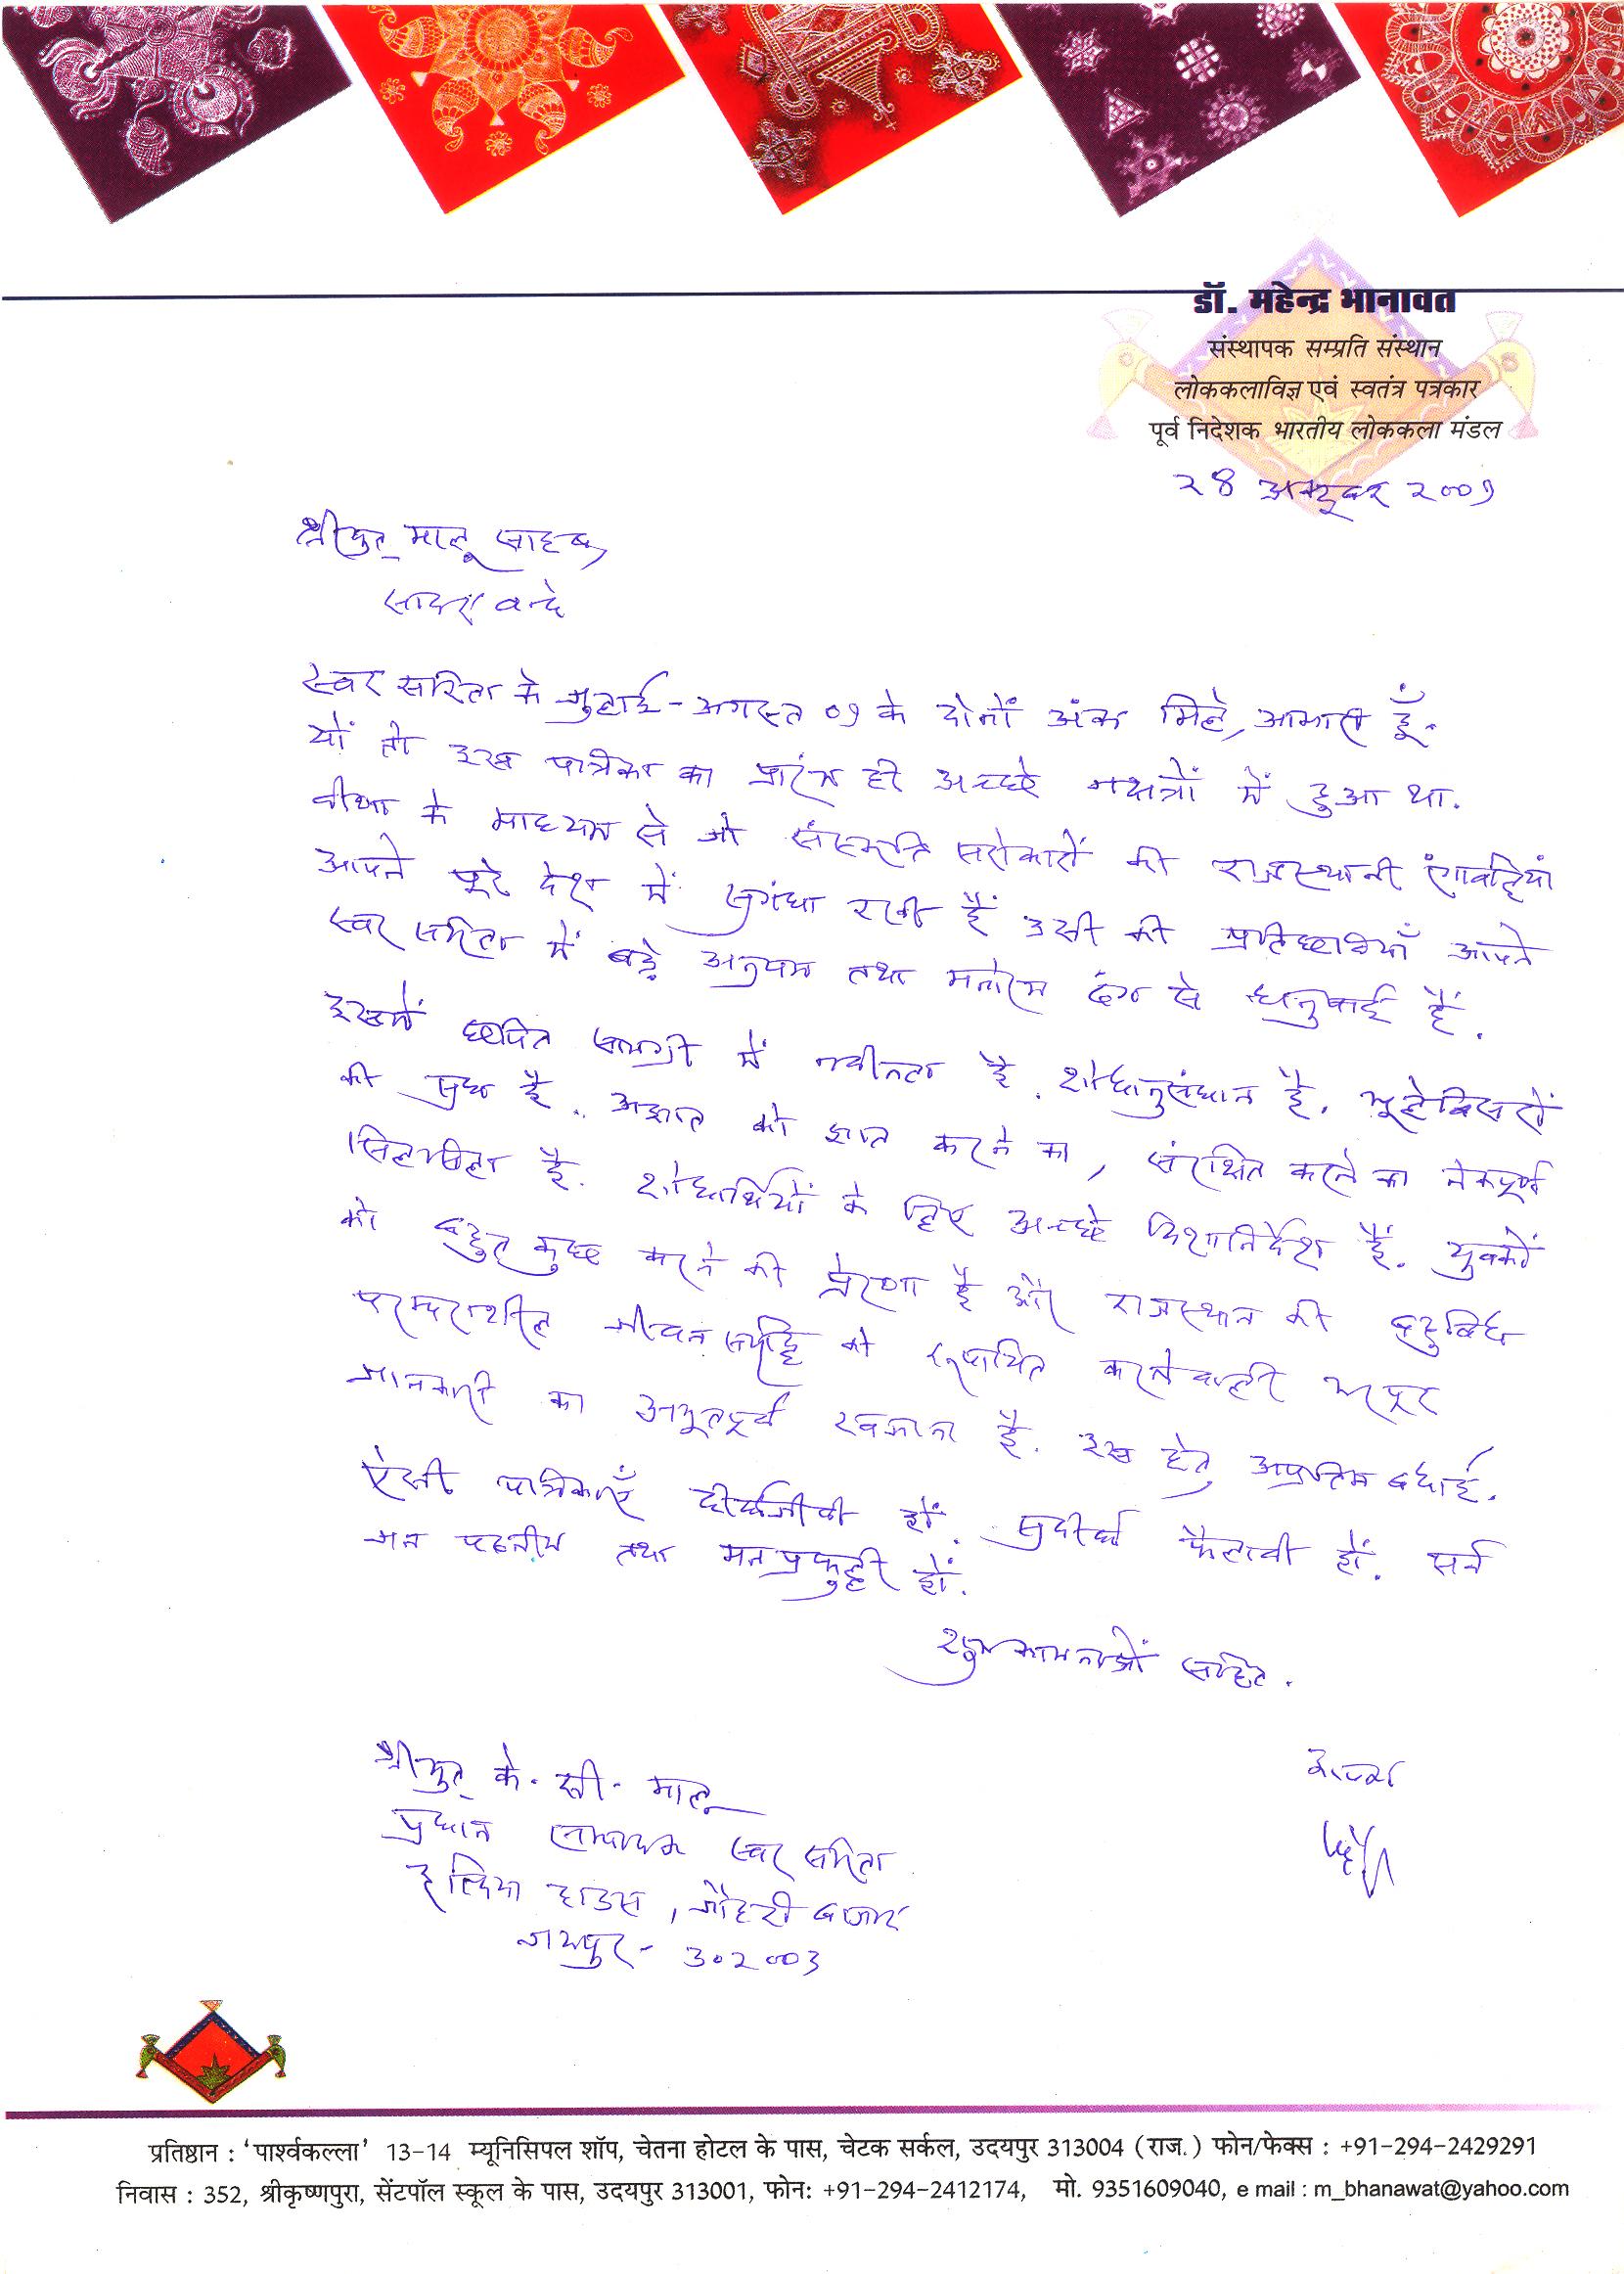 डॉ. महेन्द्र भानावत
संस्थापक सम्प्रति संस्थान
लोककलाविज्ञ एवं स्वतंत्र पत्रकार
पूर्व निदेशक भारतीय लोककला मंडल
२४ अक्टूबर २००९
श्रीयुत् मालू साहब,
सादर वन्दे
स्वर सरिता के जुलाई-अगस्त ०९ के दोनों अंक मिले, आभारी हूँ.
यों तो इस पत्रिका का प्रारंभ ही अच्छे नक्षत्रों में हुआ था.
वीणा के माध्यम से जो संस्कृति सरोकारों की राजस्थानी रंगावलियां
आपने पूरे देश में सुगंधा रखी हैं उसी की प्रतिछवियाँ आपने
स्वर सरिता में बड़े अनुपम तथा मनोरम ढंग से हैं.
इसमें छपित सामग्री में नवीनता है. शोधानुसंधान है. भूलेबिसरों
की सुध है. अज्ञात को ज्ञात करने का, संरक्षित करने का नेकपूर्ण
सिलसिला है. शोधार्थियों के लिए अच्छे दिशानिर्देश हैं. युवकों
को बहुत कुछ करने की प्रेरणा है और राजस्थान की बहुविध
परम्पराशील जीवन को रूपायित करनेवाली भरपूर
जानकारी का अभूतपूर्व खजाना है. इस हेतु अप्रतिम बधाई.
ऐसी पत्रिकाएँ दीर्घजीवी हों. सुदीर्घ फैलावी हों. सर्व
जन पठनीय तथा मनप्रफुल्ली हों.
शुभकामनाओं सहित.
श्रीयुत् के. सी. मालू
प्रधान सम्पादक स्वर सरिता
हल्दिया हाउस, जौहरी बाजार
जयपुर - 302003
आपका
प्रतिष्ठान : 'पार्श्वकल्ला' 13-14 म्यूनिसिपल शॉप, चेतना होटल के पास, चेटक सर्कल, उदयपुर 313004 (राज.) फोन/फेक्स : +91-294-2429291
निवास : 352, श्रीकृष्णपुरा, सेंटपॉल स्कूल के पास, उदयपुर 313001, फोन: +91-294-2412174, मो. 9351609040, e mail : m_bhanawat@yahoo.com